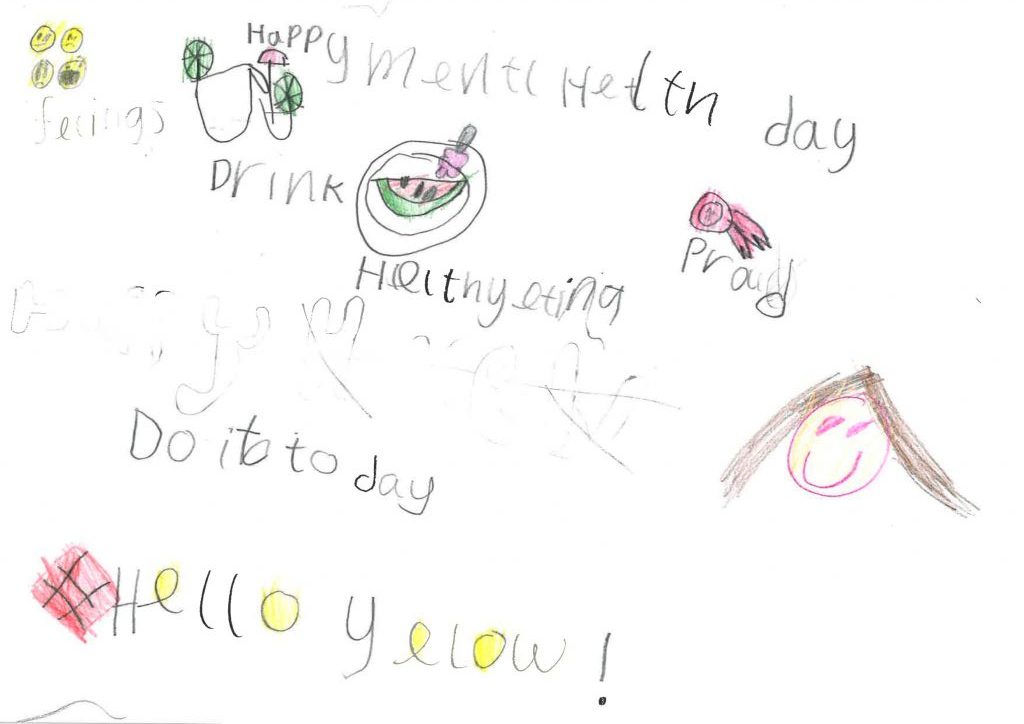 Happy mentl Helth day
feelings
Drink
Helthy eting
Proud
Do it to day
#Hello yelow!